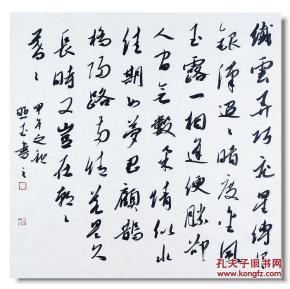 纖雲弄巧飛星傳恨
銀漢迢〻暗度金風
玉露一相逢便勝卻
人間無數柔情似水
佳期如夢忍顧鵲
橋歸路兩情若是久
長時又豈在朝〻
暮〻
甲午之秋
書
孔夫子旧书网
www.kongfz.com